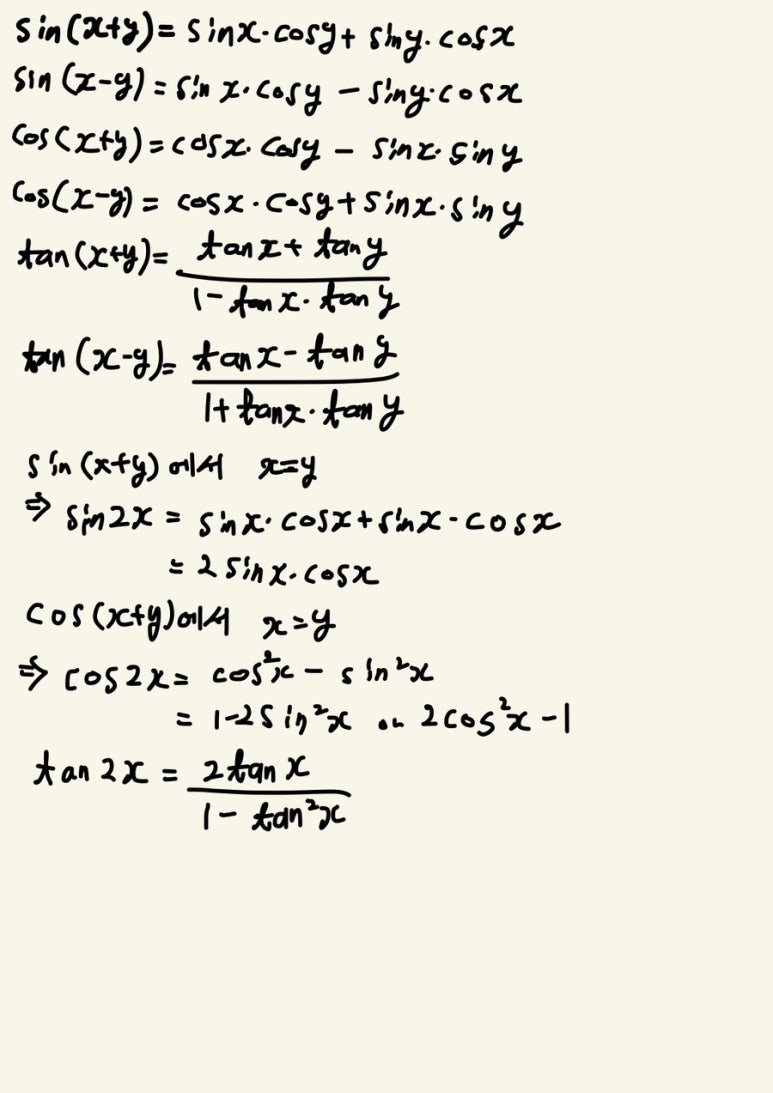 sin(x+y)= sinx·cosy+ siny·cosx
sin (x-y)= sin x·cosy - siny·cosx
cos(x+y)=cosx·cosy - sinx·siny
cos(x-y)= cosx·cosy+sinx·siny
tan(x+y)= tanx+tany
1-tanx·tany
tan (x-y)= tanx-tany
1+tanx·tany
sin(x+y)에서 x=y
⇒ sin2x = sinx·cosx+sinx·cosx
= 2sinx·cosx
cos(x+y)에서 x=y
⇒ cos2x= cos²x - sin²x
= 1-2sin²x or 2cos²x-1
tan2x = 2tanx
1- tan²x